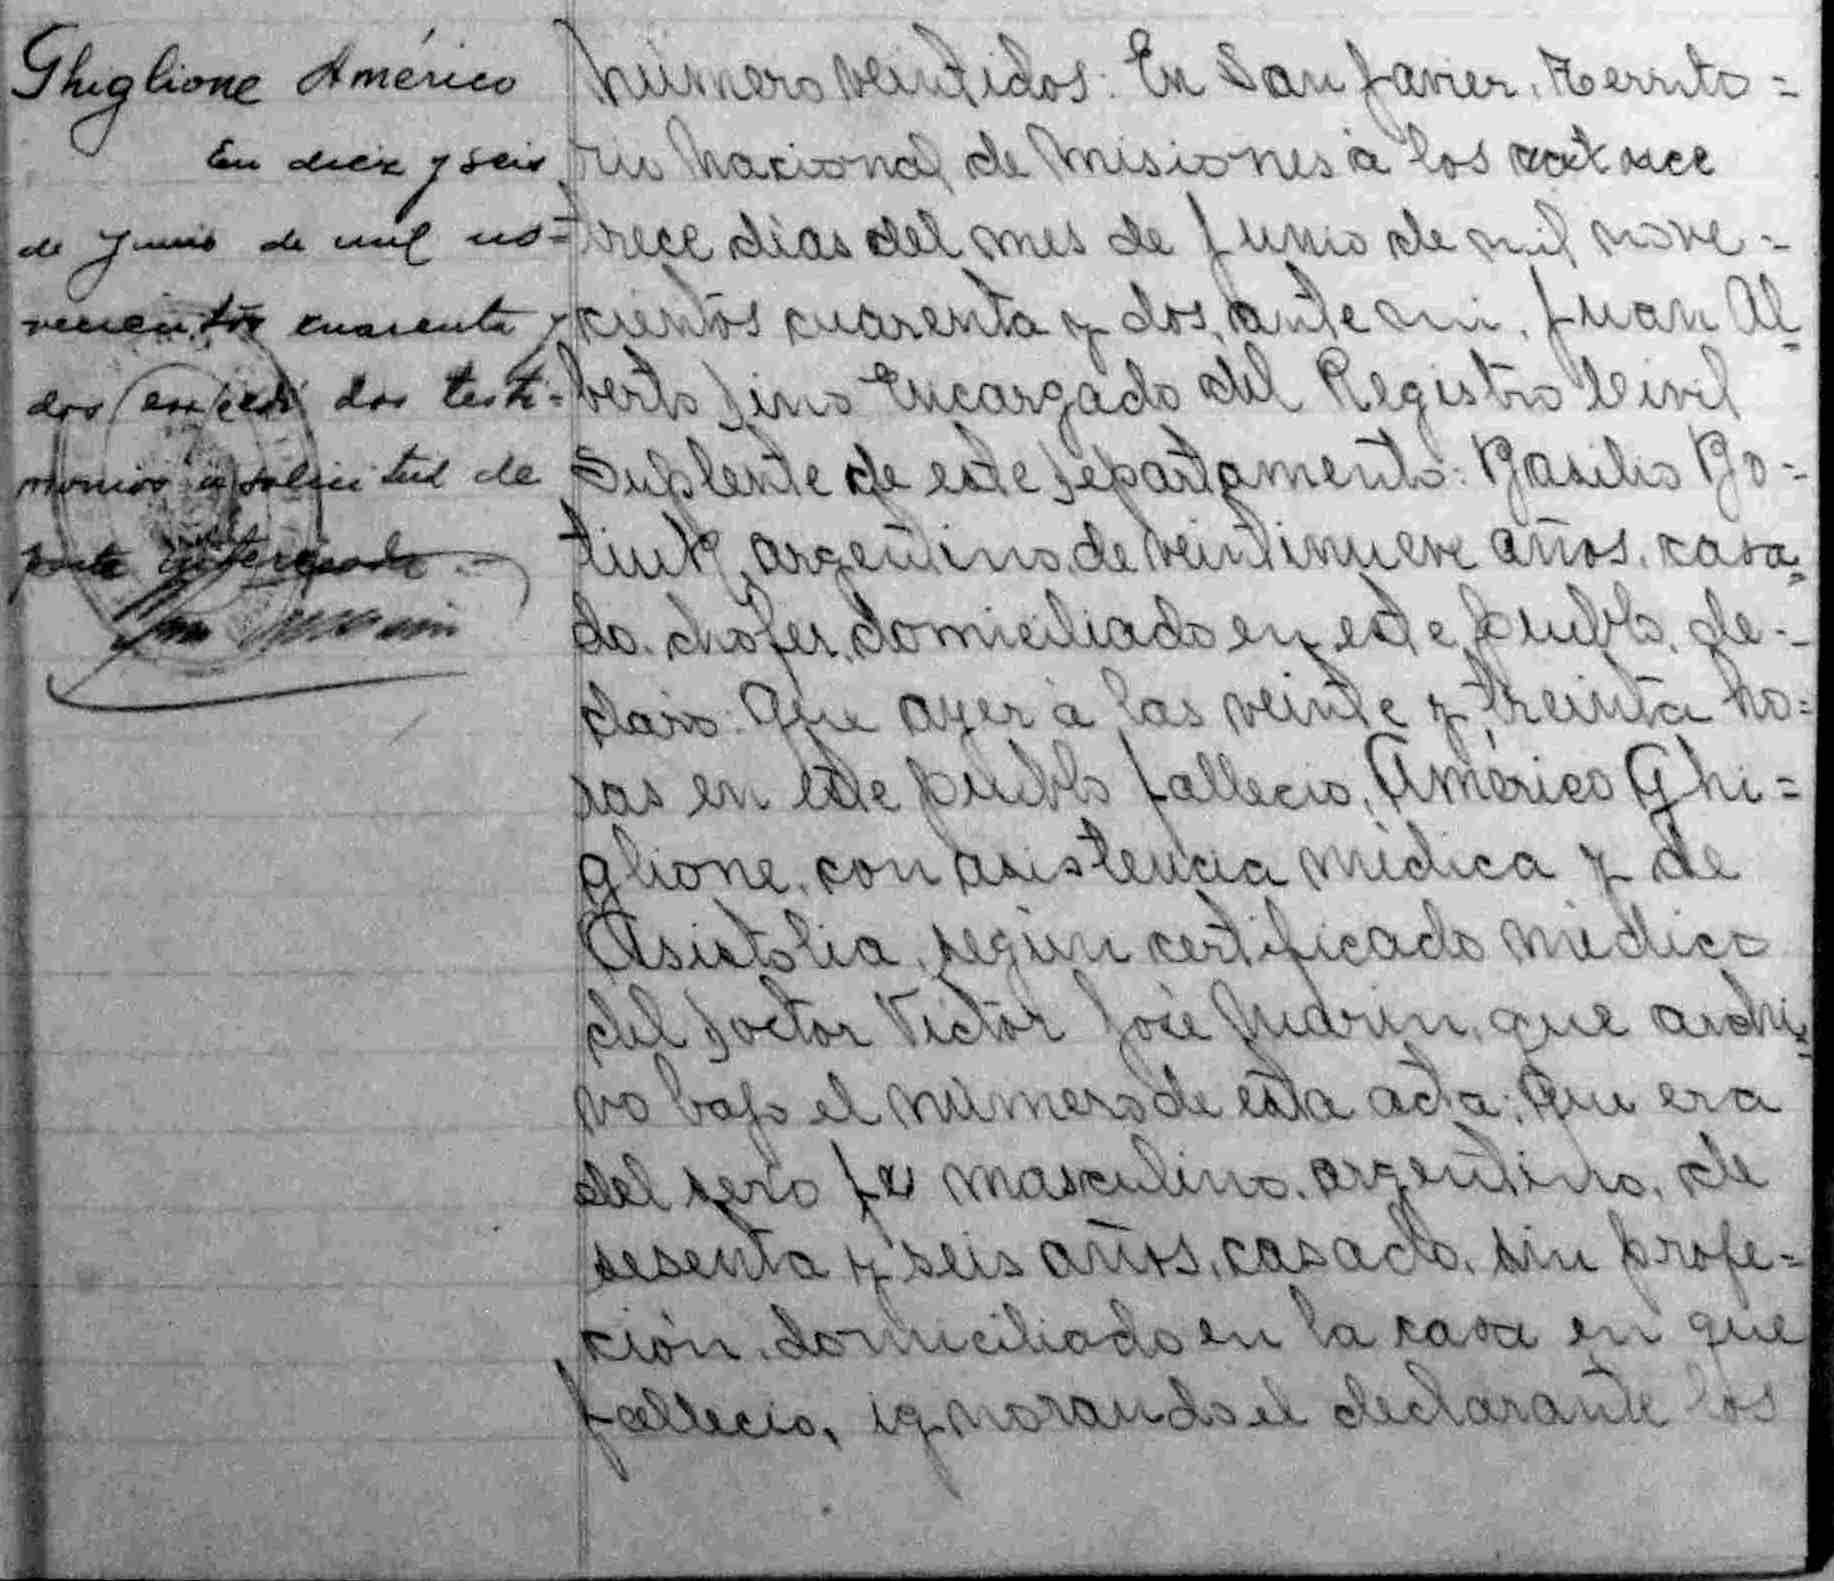 Ghiglione Américo
En diez y seis
de Junio de mil no=
vecientos cuarenta y
dos expedi dos testi=
monios a solicitud de
parte interesada.-
Número veintidos: En San Javier, Territo=
rio Nacional de Misiones á los catorce
trece dias del mes de Junio de mil nove=
cientos cuarenta y dos, ante mi, Juan Al=
berto Encargado del Registro Civil
Suplente de este Departamento: Basilio Bo=
tiuk, argentino, de veintinueve años, casa=
do, chofer, domiciliado en este pueblo, de=
claro: Que ayer á las veinte y treinta ho=
ras en este pueblo fallecio, Américo Ghi=
glione, con asistencia médica y de
Asistolia, según certificado médico
del Doctor Victor José Marin, que archi=
vo bajo el número de esta acta; Que era
del sexo fe masculino, argentino, de
sesenta y seis años, casado, sin profe=
ción, domiciliado en la casa en que
fallecio, ignorando el declarante los